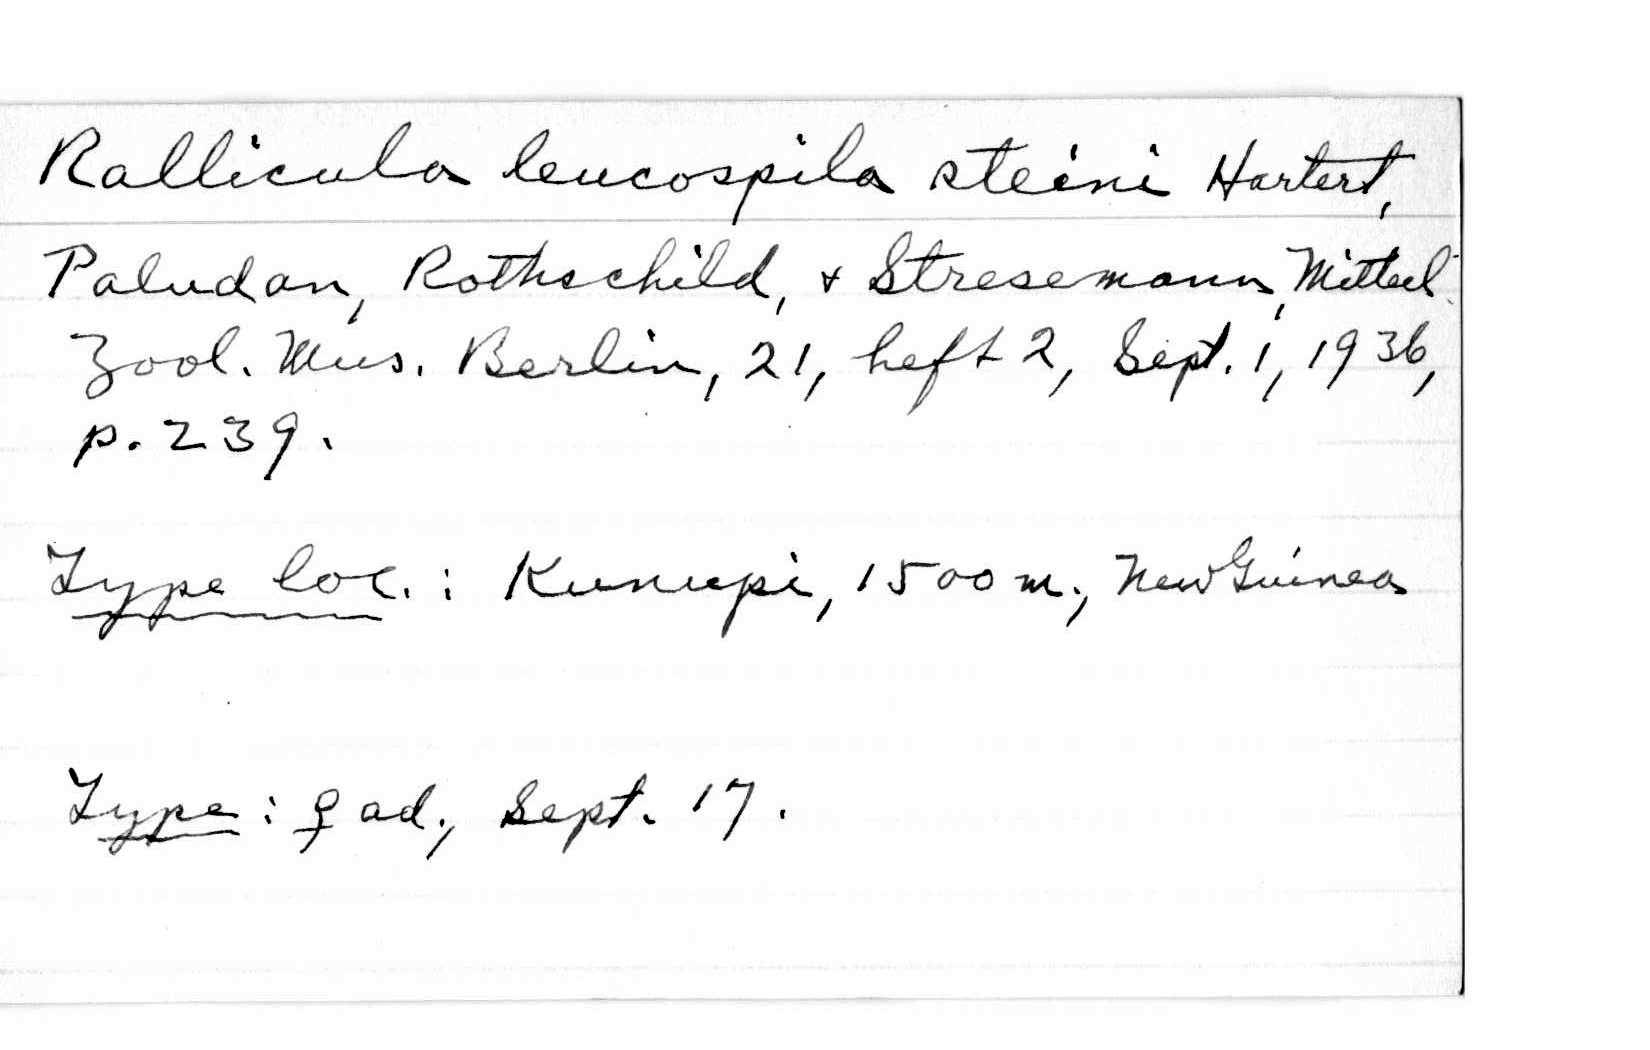 Rallicula leucospila steini Hartert,
Paludan, Rothschild, + Stresemann, Mitteil.
Zool. Mus. Berlin, 21, heft 2, Sept. 1, 1936,
p. 239.
Type loc.: Kunupi, 1500 m., New Guinea
Type: ♀ ad., Sept. 17.